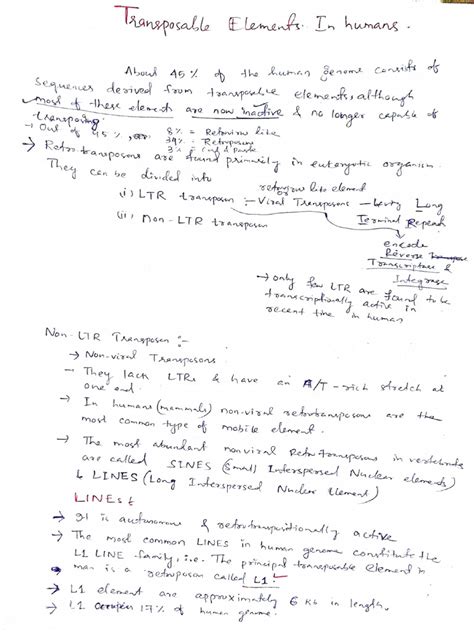 Transposable Elements. In humans.
About 45% of the human genome consists of
sequences derived from transposable elements, although
most of these elements are now inactive & no longer capable of
transposing.
→ Out of 45%, 8% = Retrovirus like
34% = Retroposon
3% = Cut & Paste
→ Retrotransposons are found primarily in eukaryotic organism.
They can be divided into
retrovirus like element
(i) LTR transposon :- Viral Transposons - Long
Terminal Repeat
(ii) non-LTR transposon
encode
Reverse
Transcriptase &
Integrase
→ only few LTR are found to be
transcriptionally active in
recent time in human
Non-LTR Transposon :-
→ Non-viral Transposons
- They lack LTRs & have an A/T-rich stretch at
one end.
→ In humans (mammals) non-viral retrotransposons are the
most common type of mobile element.
→ The most abundant nonviral Retrotransposons in vertebrate
are called SINES (Small Interspersed Nuclear elements)
& LINES (Long Interspersed Nuclear Element)
LINEs
→ It is autonomous & retrotranspositionally active
→ The most common LINES in human genome constitute the
L1 LINE family, i.e. The principal transposable element in
man is a retroposon called L1.
→ L1 element are approximately 6 Kb in length.
→ L1 17% of human genome.